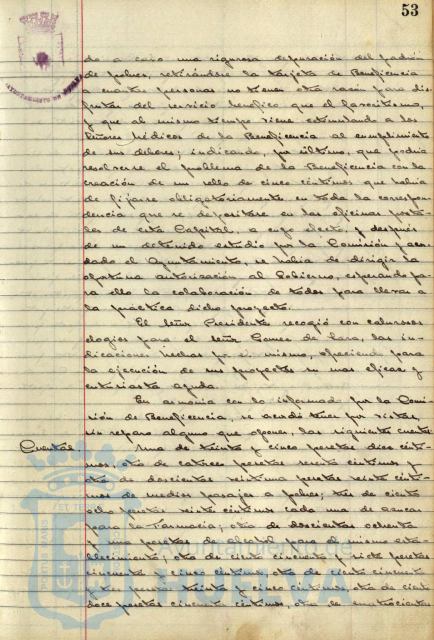 53
AYUNTAMIENTO DE HUELVA
do a cabo una rigurosa depuración del padrón
de pobres, retirándose la tarjeta de Beneficencia
a cuantas personas no tienen otra razón para dis-
frutar del servicio benéfico que el
y que al mismo tiempo viene estimulando a los
Señores Médicos de la Beneficencia al cumplimiento
de sus deberes; indicando, por último, que podría
resolverse el problema de la Beneficencia con la
creación de un sello de cinco céntimos que había
de fijarse obligatoriamente en toda la correspon-
dencia que se depositase en las oficinas posta-
les de esta Capital, a cuyo efecto, y después
de un detenido estudio por la Comisión y acor-
dado el Ayuntamiento, se había de dirigir la
oportuna autorización al Gobierno, esperando pa-
ra ello la colaboración de todos para llevar a
la práctica dicho proyecto.
El Señor Presidente recogió con calurosos
elogios para el Señor Gomez de Lara, las in-
dicaciones hechas por el mismo, ofreciendo para
la ejecución de sus proyectos su mas eficaz y
entusiasta ayuda.
En armonía con lo informado por la Comi-
sión de Beneficencia, se acordó tener por vistas,
sin reparo alguno que oponer, las siguientes cuentas:
Cuentas. Una de treinta y cinco pesetas diez cénti-
mos, otra de catorce pesetas sesenta céntimos y
otra de doscientas pesetas céntimos
de medios pasajes a pobres; tres de ciento
ocho pesetas céntimos cada una de azucar
para la Farmacia; otra de doscientas ochenta
y una pesetas de alcohol para el mismo esta-
blecimiento; otra de ciento cincuenta y siete pesetas
cincuenta y cinco céntimos, otra de ciento cincuenta
y tres pesetas treinta y cinco céntimos, otra de ciento
doce pesetas cincuenta céntimos, otra de cuatrocientas
Ayuntamiento de
HUELVA